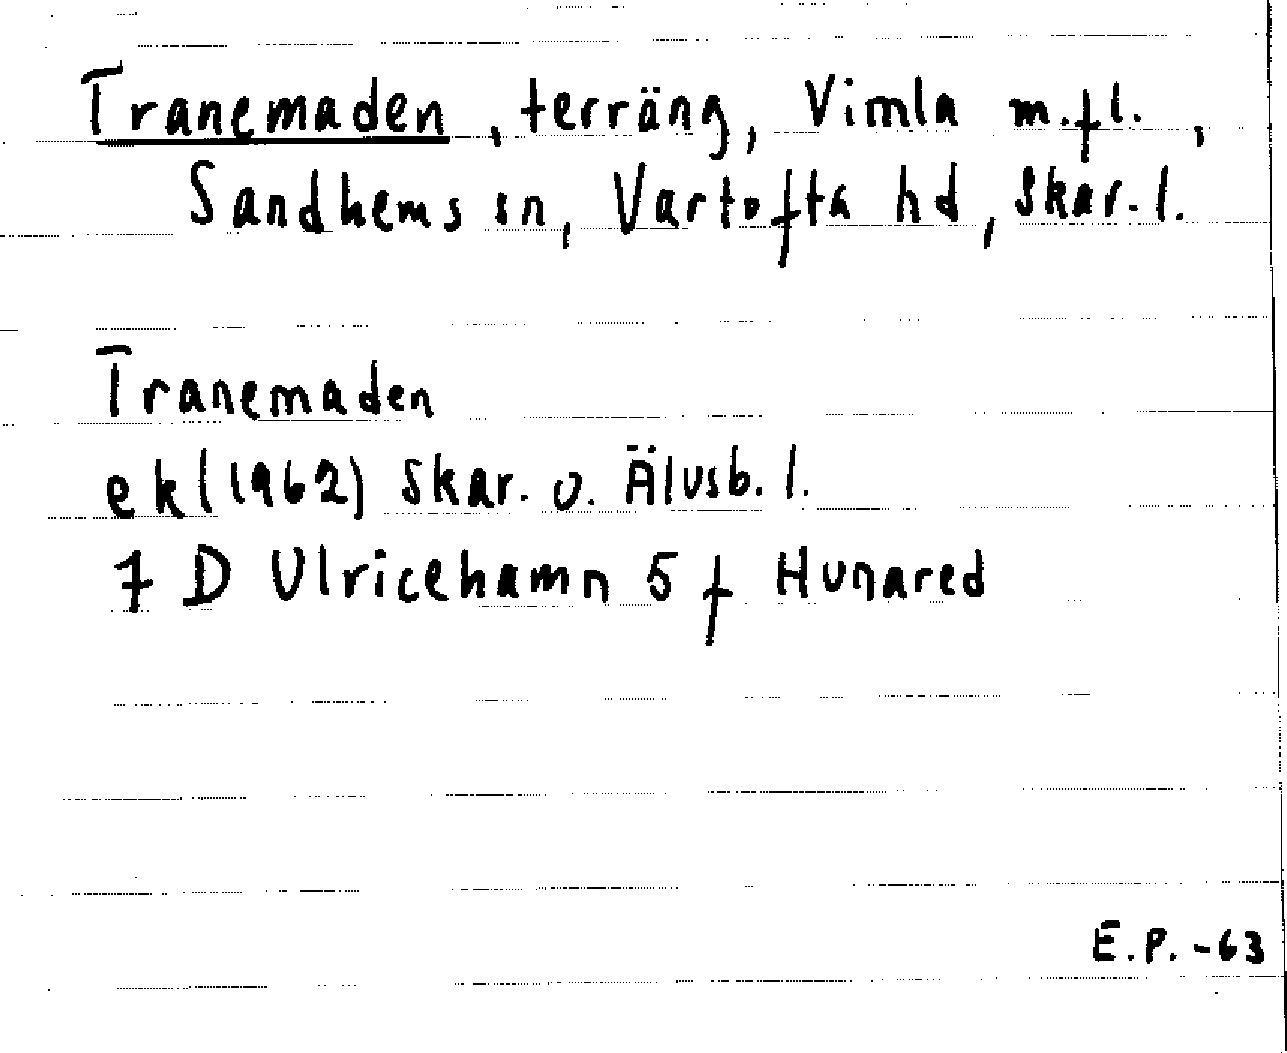 Tranemaden, terräng, Vimla m.fl.,
Sandhems sn, Vartofta hd, Skar. l.
Tranemaden
ek (1962) Skar. o. Älvsb. l.
7 D Ulricehamn 5 f Hunared
E.P. -63